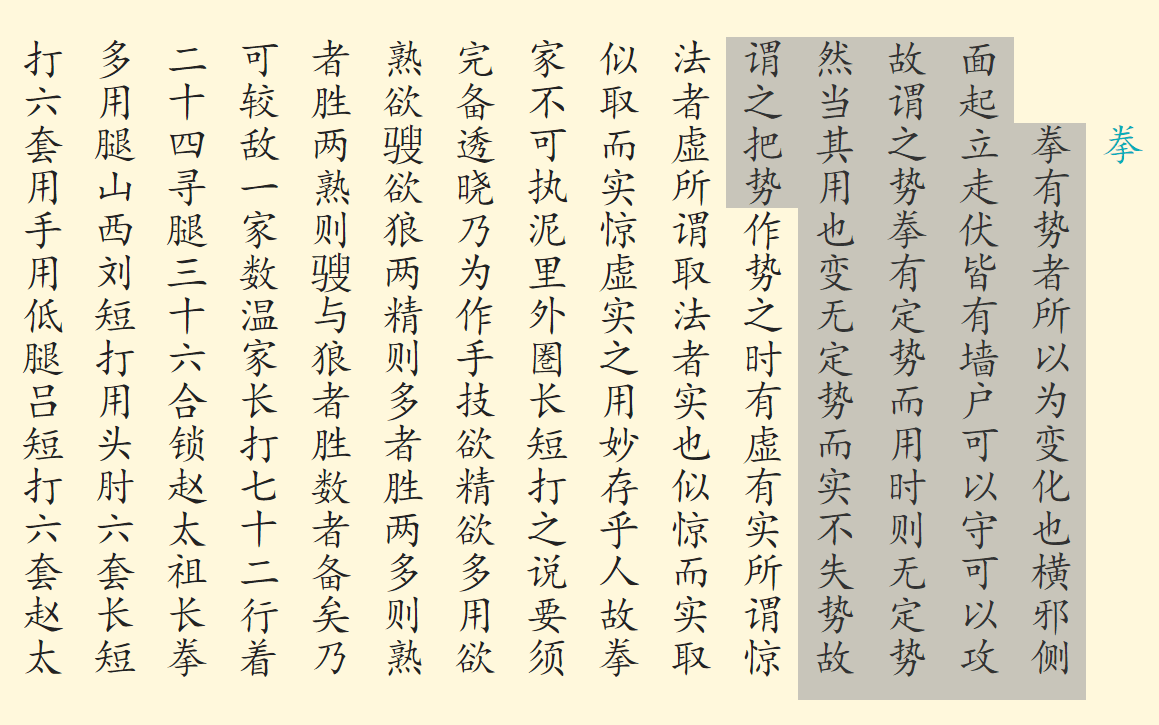 拳
拳有势者所以为变化也横邪侧
面起立走伏皆有墙户可以守可以攻
故谓之势拳有定势而用时则无定势
然当其用也变无定势而实不失势故
谓之把势作势之时有虚有实所谓惊
法者虚所谓取法者实也似惊而实取
似取而实惊虚实之用妙存乎人故拳
家不可执泥里外圈长短打之说要须
完备透晓乃为作手技欲精欲多用欲
熟欲骙欲狼两精则多者胜两多则熟
者胜两熟则骙与狼者胜数者备矣乃
可较敌一家数温家长打七十二行着
二十四寻腿三十六合锁赵太祖长拳
多用腿山西刘短打用头肘六套长短
打六套用手用低腿吕短打六套赵太